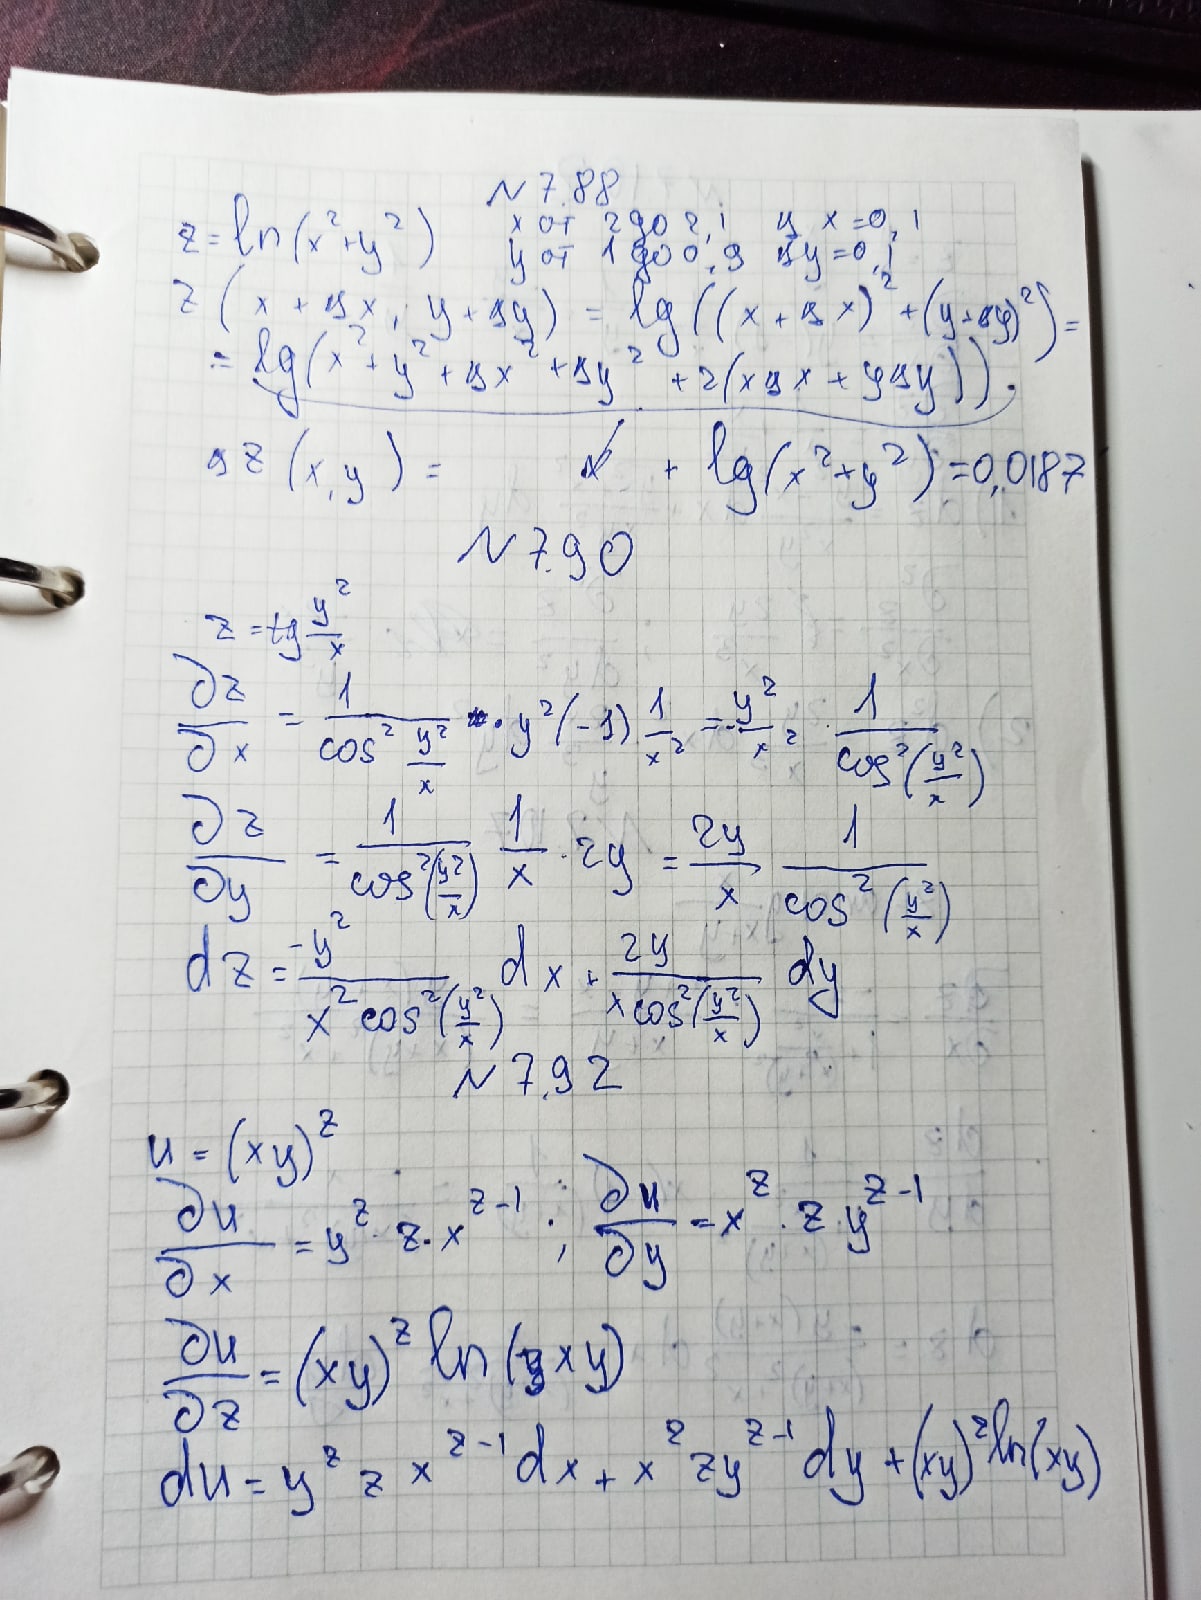 N 7.88
z = ln(x²+y²) x от 2 до 2,1 д x = 0,1
y от 1 до 0,9 дy = 0,1
z(x + дx, y + дy) = lg((x + дx)² + (y + дy)²) =
= lg(x² + y² + дx² + дy² + 2(xдx + yдy)).
дz(x, y) = + lg(x² + y²) = 0,0187
N 7.90
z = tg y²/x
∂z/∂x = 1/cos² y²/x · y²(-1) 1/x² = -y²/x² · 1/cos²(y²/x)
∂z/∂y = 1/cos²(y²/x) 1/x · 2y = 2y/x 1/cos²(y²/x)
dz = -y²/x² cos²(y²/x) dx + 2y/x cos²(y²/x) dy
N 7.92
u = (xy)^z
∂u/∂x = y^z · z · x^(z-1) ; ∂u/∂y = x^z · z y^(z-1)
∂u/∂z = (xy)^z ln(xy)
du = y^z z x^(z-1) dx + x^z z y^(z-1) dy + (xy)^z ln(xy)